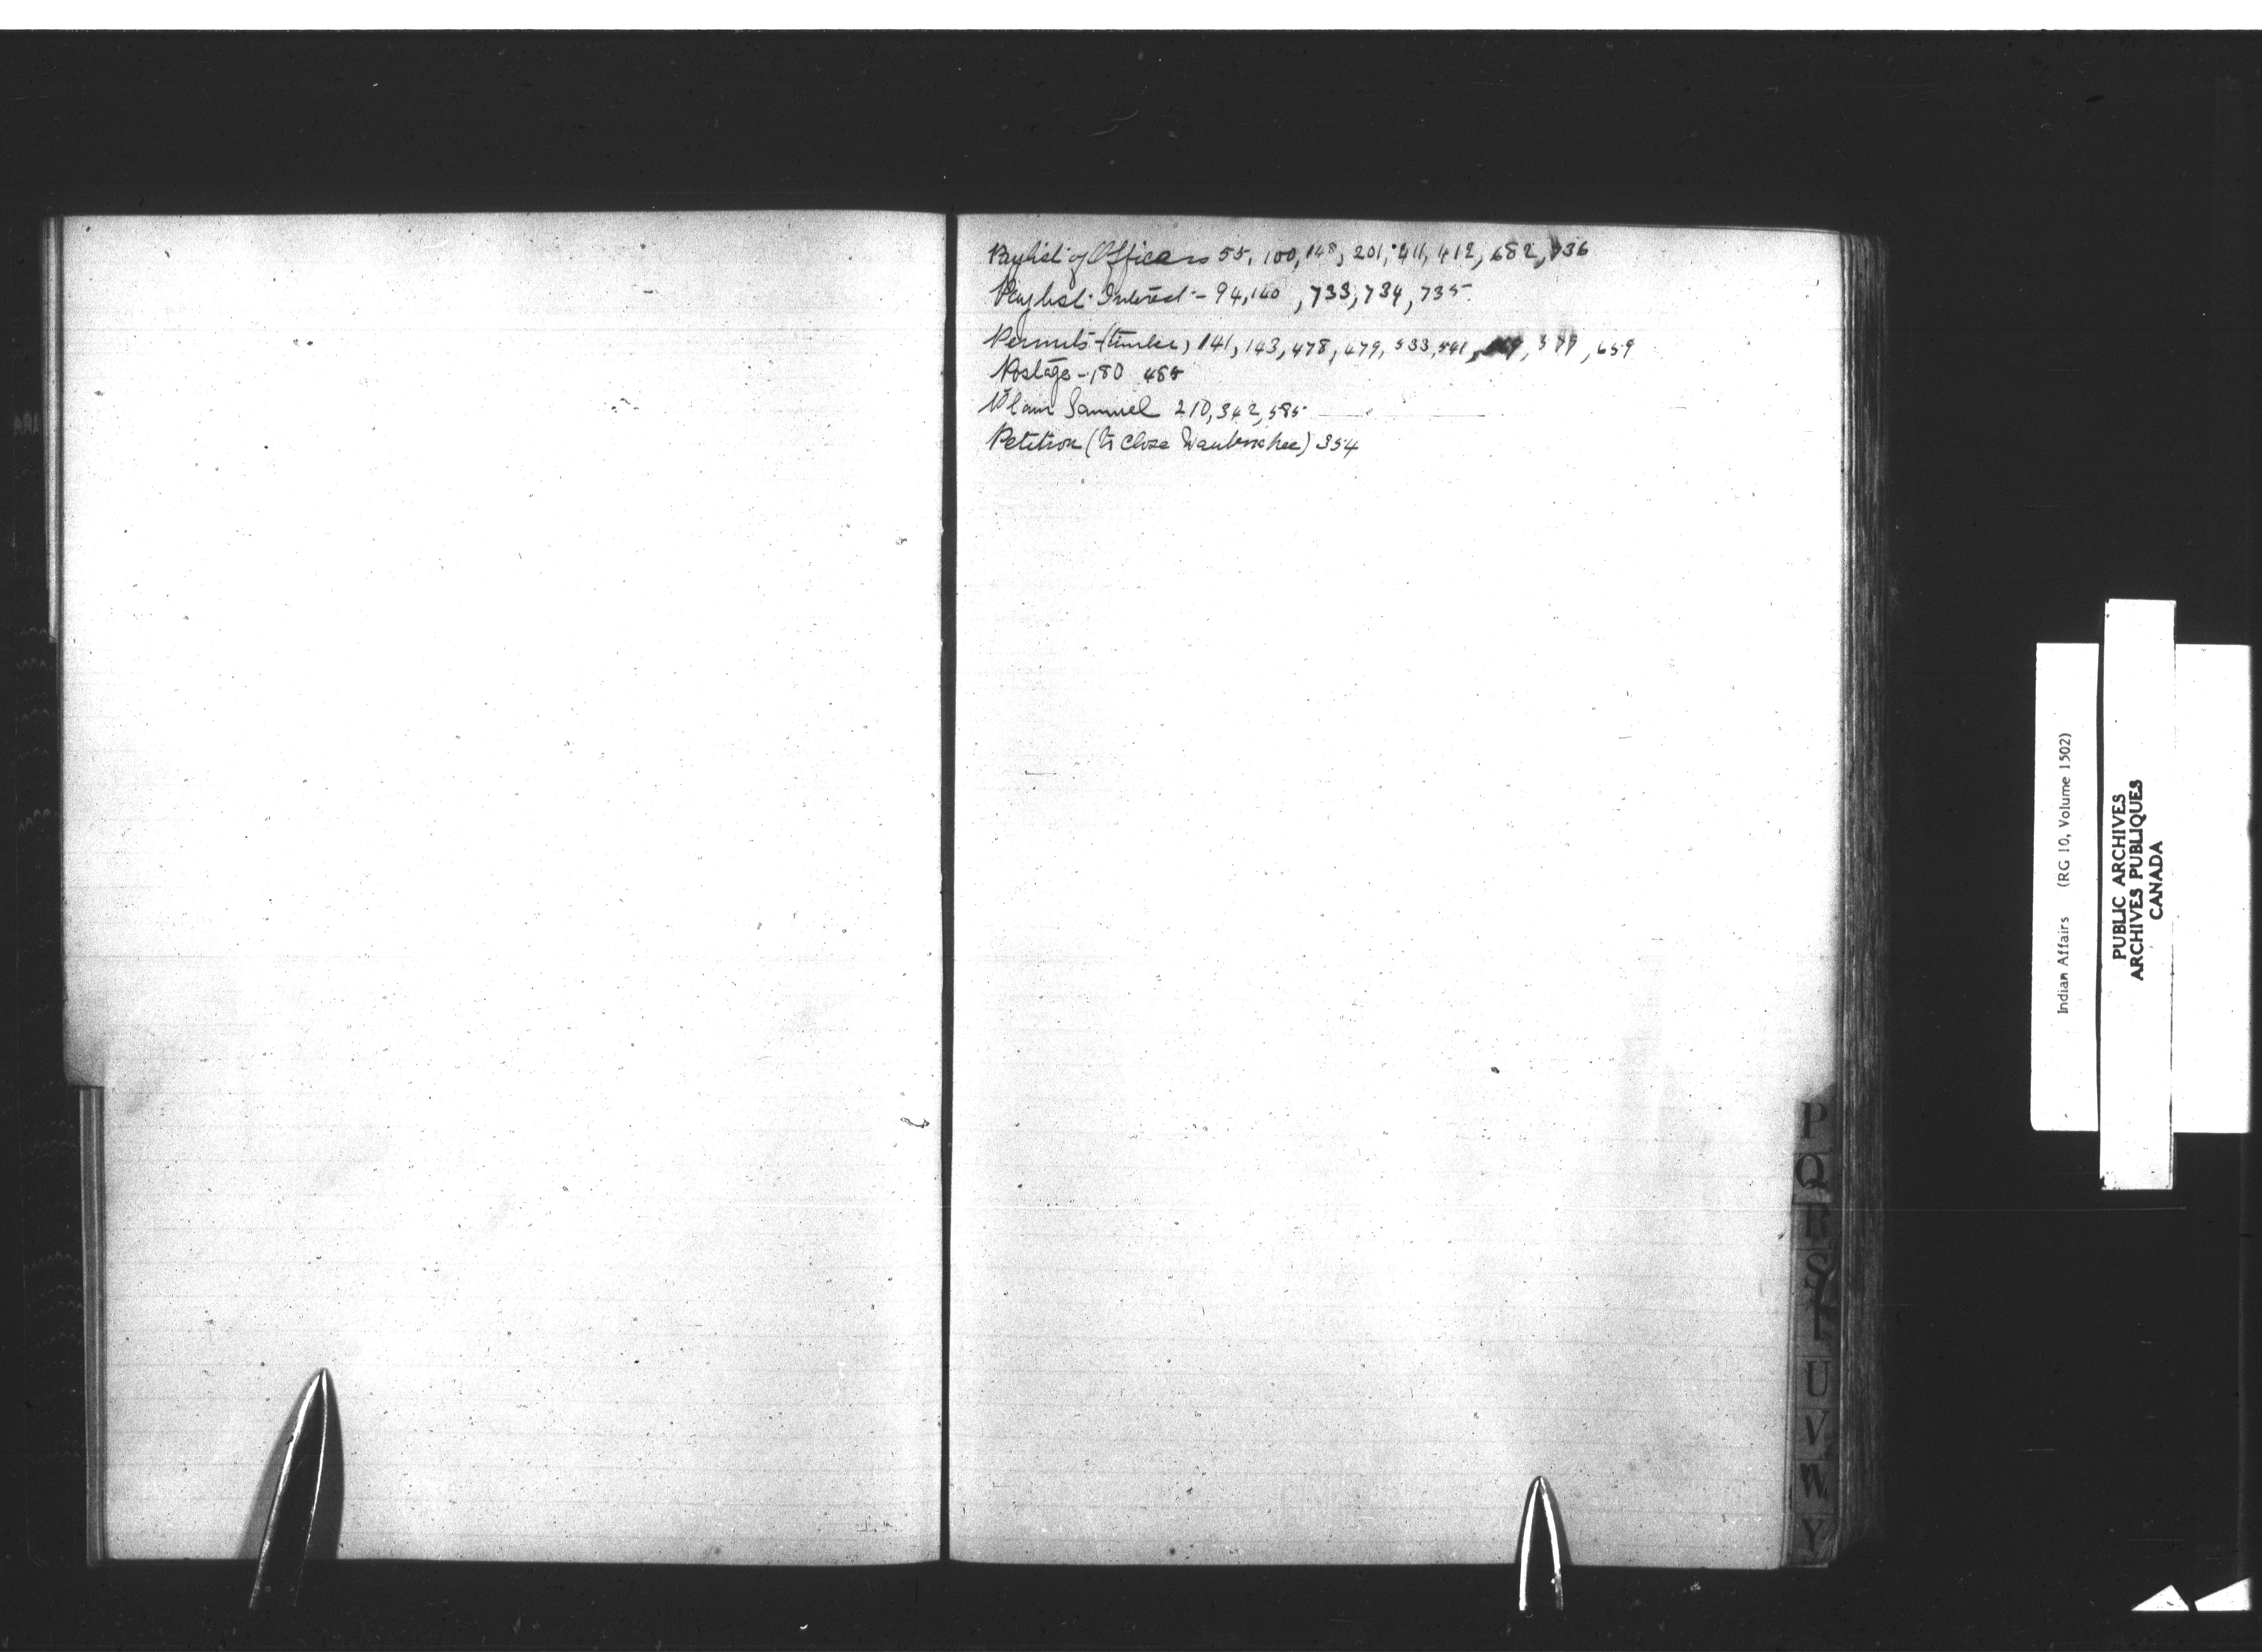 Paylist of Officers 55, 100, 148, 201, 411, 412, 682, 736
Paylist Interest - 94, 140, 733, 734, 735
Permits (timber) 141, 143, 478, 479, 533, 541, 399, 659
Postage - 180 485
Plain Samuel 210, 342, 585
Petition (to close Waubaushee) 354
P
Q
R
S
T
U
V
W
Y
Indian Affairs (RG 10, Volume 1502)
PUBLIC ARCHIVES
ARCHIVES PUBLIQUES
CANADA